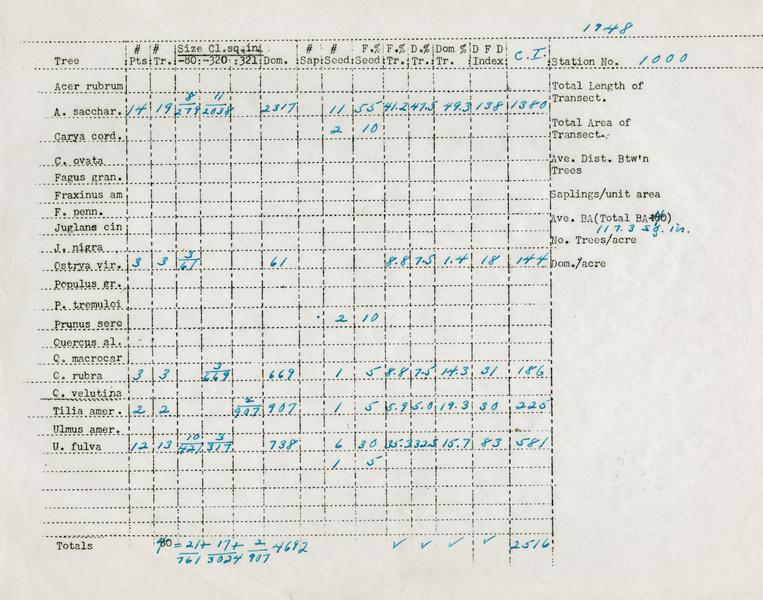 1948
# # Size Cl.sq.in. # # F.% F.% D.% Dom % D F D C.I.
Tree Pts Tr. -80:-320 :321 Dom. Sap. Seed. Seed Tr. Tr. Tr. Index Station No. 1000
Acer rubrum Total Length of Transect.
8 11
A. sacchar. 14 19 279 2038 2317 11 55 41.2 47.5 49.3 138 1380
2 10 Total Area of Transect.
Carya cord.
C. ovata Ave. Dist. Btw'n Trees
Fagus gran.
Fraxinus am Saplings/unit area
F. penn.
Ave. BA(Total BA 40)
Juglans cin 117.3 sq. in.
J. nigra No. Trees/acre
3
Ostrya vir. 3 3 61 61 8.8 7.5 1.4 18 144 Dom./acre
Populus gr.
P. tremuloi
Prunus sero 2 10
Quercus al.
Q. macrocar
3
Q. rubra 3 3 669 669 1 5 8.8 7.5 14.3 31 186
Q. velutina
2
Tilia amer. 2 2 907 907 1 5 5.9 5.0 19.3 30 225
Ulmus amer.
10 3
U. fulva 12 13 421 317 738 6 30 35.3 32.5 15.7 83 581
1 5
Totals = 21+ 17+ 2 4692 ✓ ✓ ✓ ✓ 2516
761 3024 907